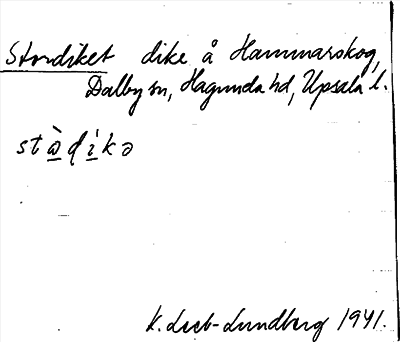 Stordiket dike å Hammarskog,
Dalby sn, Hagunda hd, Upsala l.
stàdíkə
K. Leeb-Lundberg 1941.